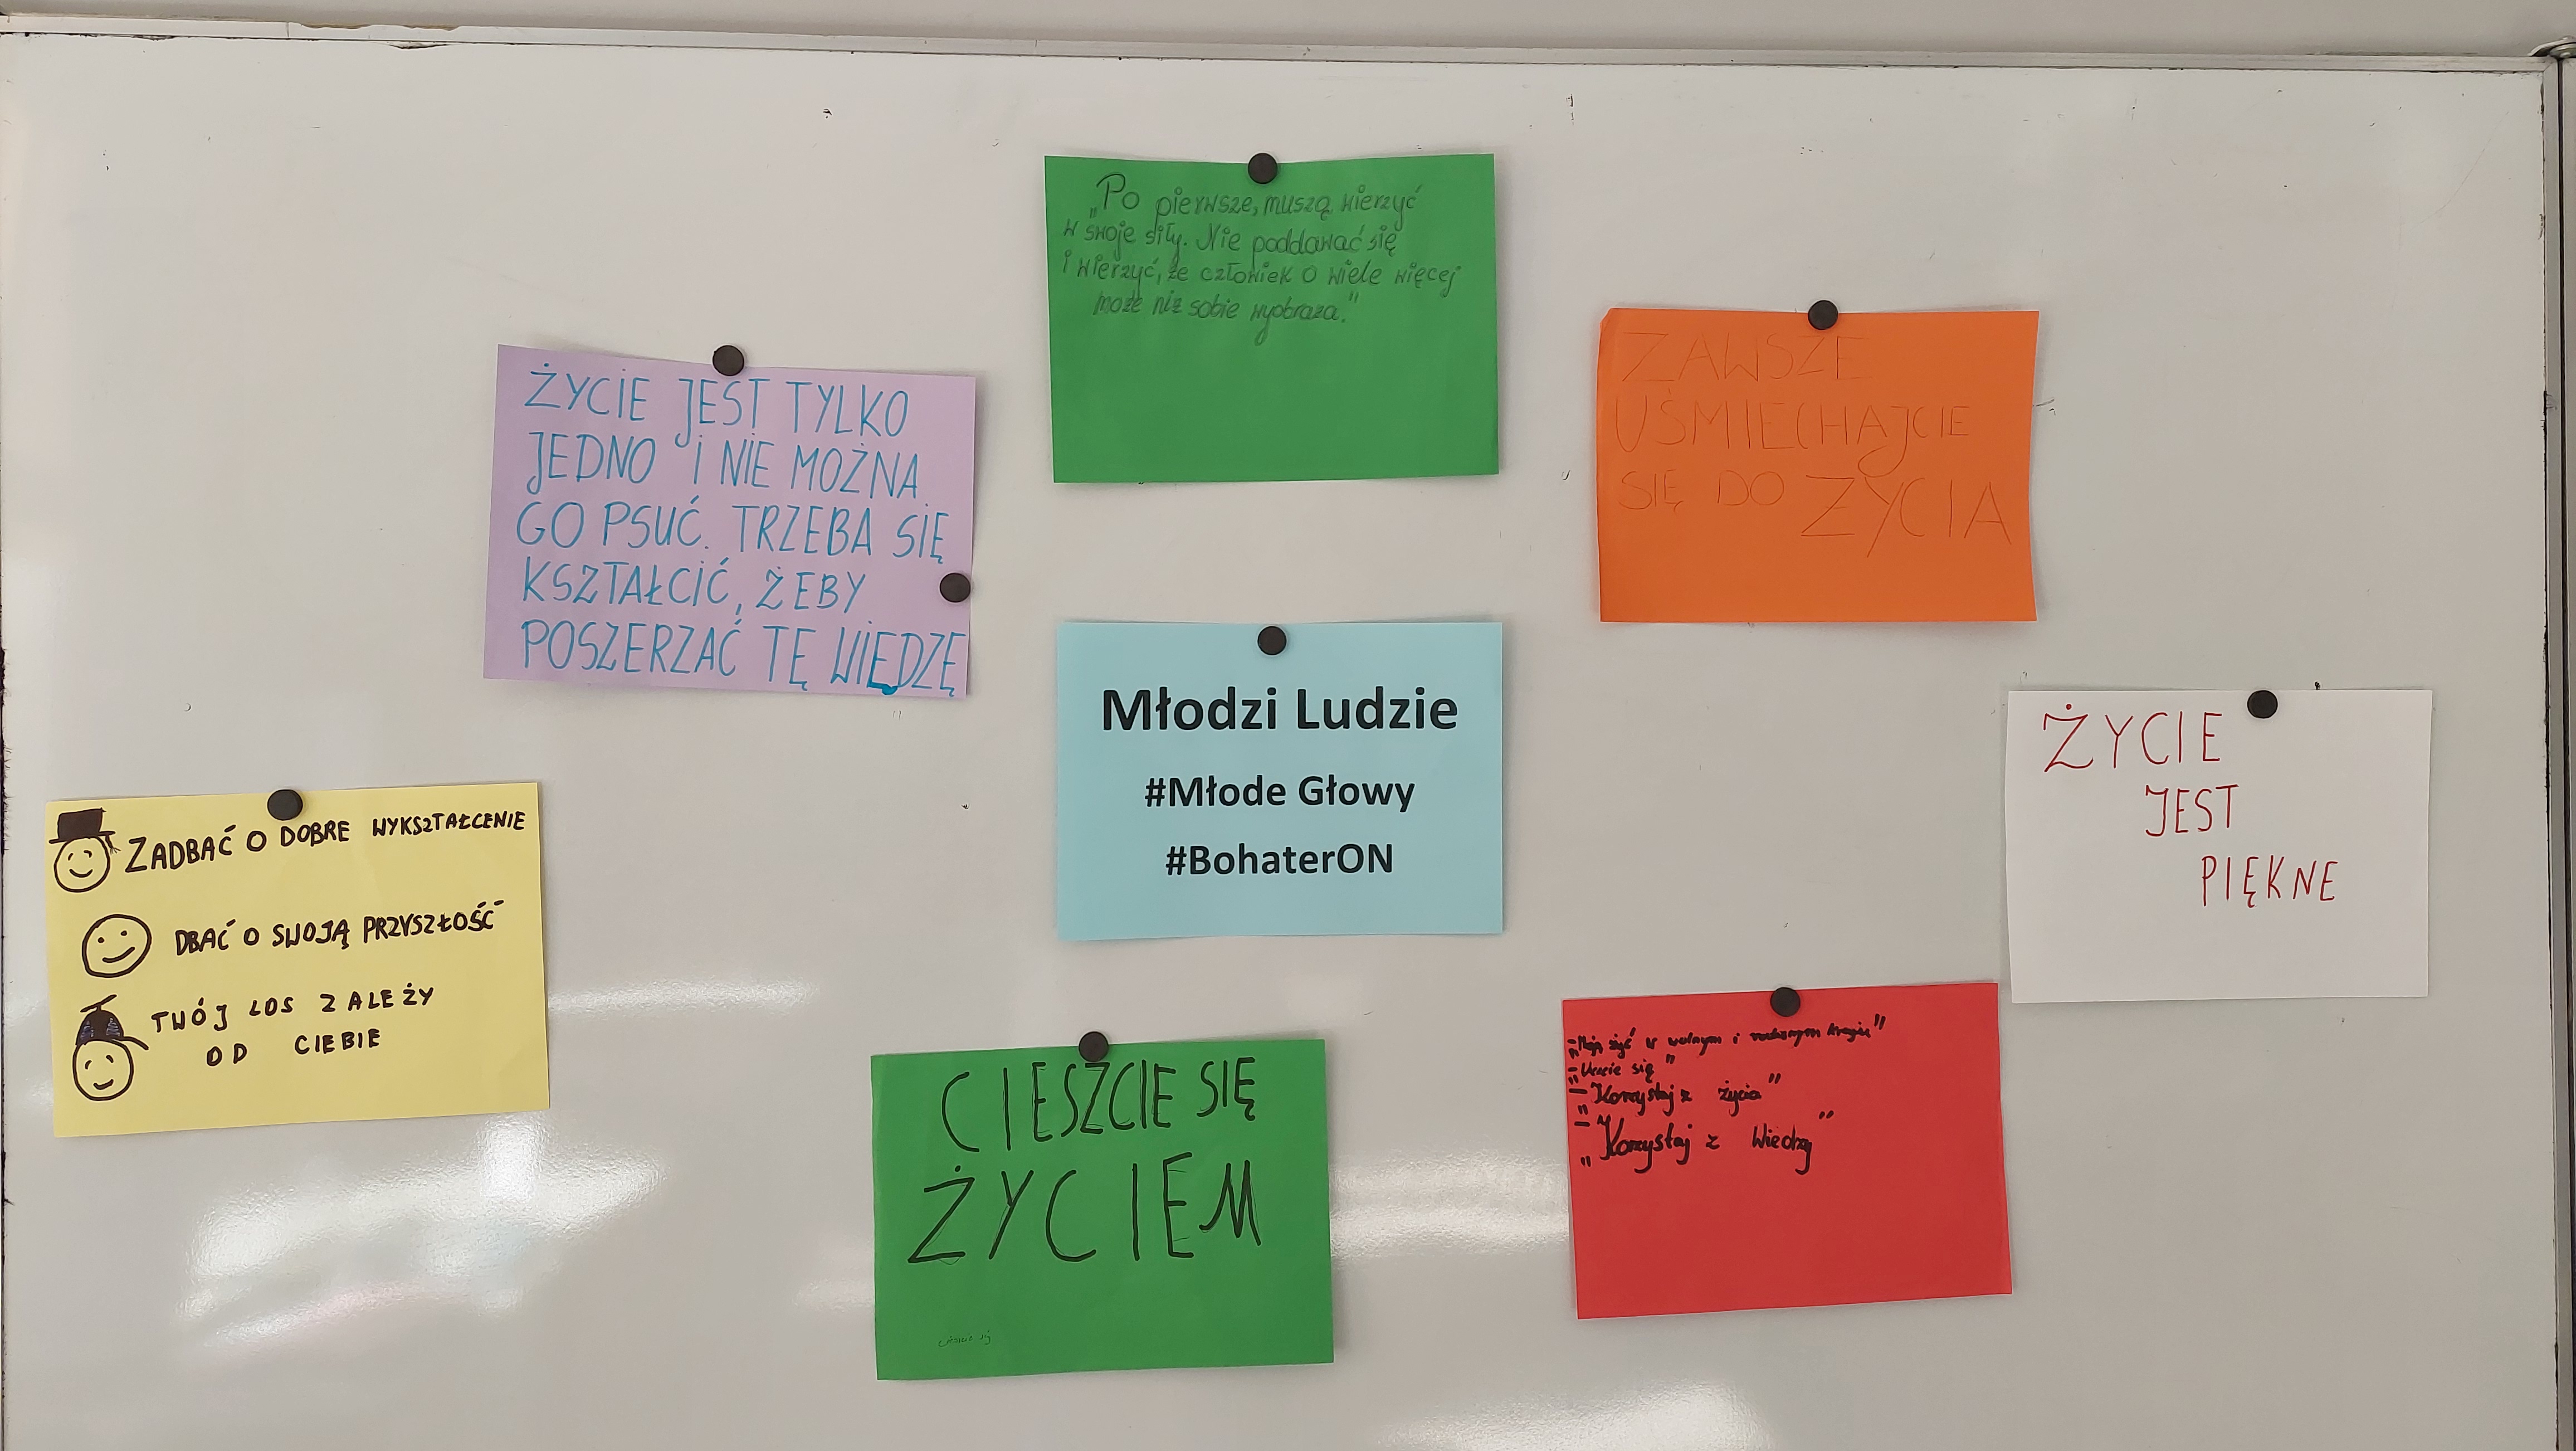 „Po pierwsze, muszą wierzyć
w swoje siły. Nie poddawać się
i wierzyć, że człowiek o wiele więcej
może niż sobie wyobraza."
ŻYCIE JEST TYLKO
JEDNO I NIE MOŻNA
GO PSUĆ. TRZEBA SIĘ
KSZTAŁCIĆ, ŻEBY
POSZERZAĆ TĘ WIEDZĘ
ZAWSZE
UŚMIECHAJCIE
SIĘ DO ŻYCIA
Młodzi Ludzie
#Młode Głowy
#BohaterON
ŻYCIE
JEST
PIĘKNE
ZADBAĆ O DOBRE WYKSZTAŁCENIE
DBAĆ O SWOJĄ PRZYSZŁOŚĆ
TWÓJ LOS ZALEŻY
OD CIEBIE
CIESZCIE SIĘ
ŻYCIEM
- „Mają żyć w wolnym i
się"
- „Korzystaj z życia"
- „Korzystaj z Wiedzy"